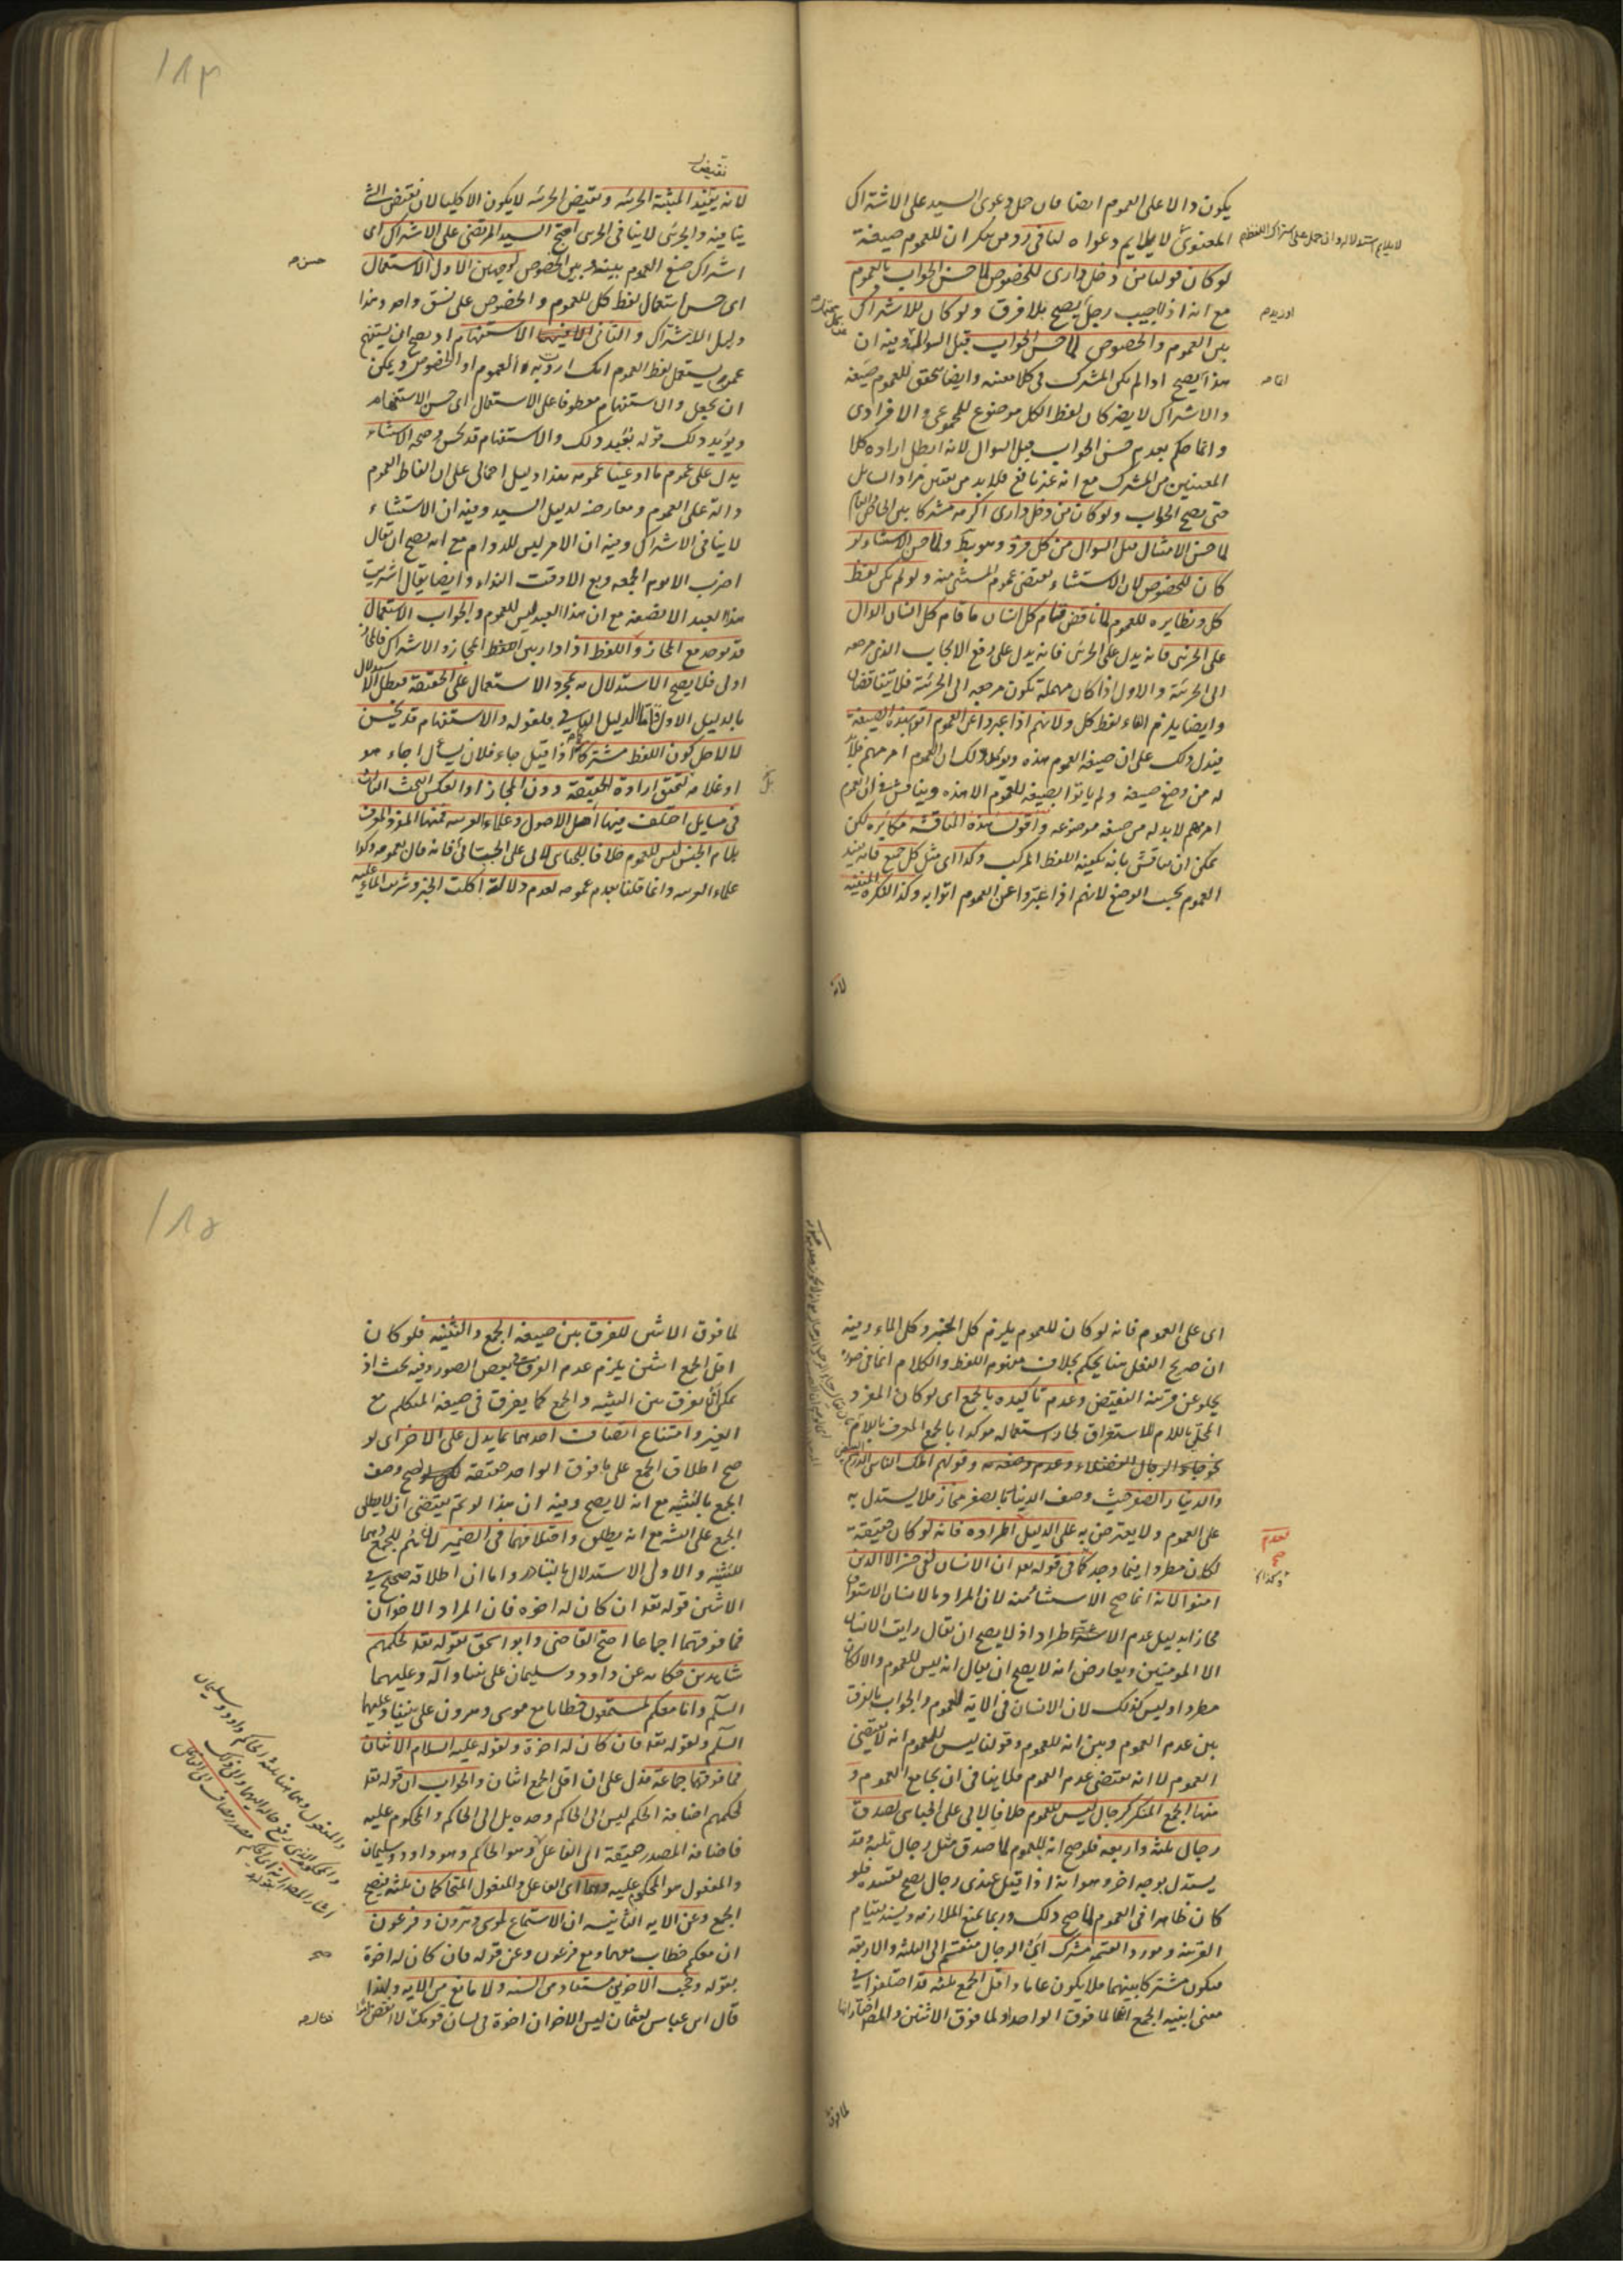 يكون دالا على العموم ايضا فان حمل دعوى السيد على الاشتراك
المعنوى لا يلايم دعواه لنا فى
لو كان قولنا من دخل دارى للخصوص لما حسن الجواب بالعموم
مع انه اذا اجيب رجل يصح بلا فرق ولو كان للاشتراك
بين العموم والخصوص لما حسن الجواب قبل السوال وفيه ان
هذا يصح اذا لم يكن المشترك فى كلا معنييه وايضا تحقق للعموم صيغة
والاشتراك لا يضر كان لفظ الكل موضوع للمجموعى والافرادى
وانما حكم بعدم حسن الجواب قبل السوال لانه ابطل اراده كلا
المعنيين من المشترك مع انه غير نافع فلا بد من تعيين مراد السائل
حتى يصح الجواب ولو كان من دخل دارى اكرمه مشتركا بين الخاص والعام
لما حسن الامتثال قبل السوال من كل فرد وهو بط ولما حسن الاستثناء لو
كان للخصوص لان الاستثناء يقتضى عموم المستثنى منه ولو لم يكن لفظ
كل ونظايره للعموم لما ناقض قيام كل انسان ما قام كل انسان الدال
على الجزئى فانه يدل على الجزئى فانه يدل على رفع الايجاب الذى مرجعه
الى الجزئية والاول اذا كان مهملة تكون مرجعه الى الجزئية فلا يتناقضان
وايضا يلزم الغاء لفظ كل ولانهم اذا عبروا عن العموم اتوا بهذه الصيغة
فيدل ذلك على ان صيغة العموم هذه ويوكد ذلك ان العموم امر مهم فلا بد
له من وضع صيغة ولم ياتوا بصيغة للعموم الا هذه ويناقش فى ان العموم
امر مهم لا بد له من صيغة موضوعه واقول هذه المناقشة مكابره لكن
يمكن ان يناقش بانه يكفيه اللفظ المركب وكذا اى مثل كل جميع فانه يفيد
العموم بحسب الوضع لانهم اذا عبروا عن العموم اتوا به وكذا النكره المنفية
لانه
نقيض
لانه يفيد المثبتة الجزئيه ونقيض الجزئيه لا يكون الا كليا لان نقيض الشئ
ينافيه والجزئى لا ينافى الجزئى احتج السيد المرتضى على الاشتراك اى
اشتراك صيغ العموم بينه وبين الخصوص لوجهين الاول الاستعمال
اى حسن استعمال لفظ كل للعموم والخصوص على نسق واحد وهذا
دليل الاشتراك والثانى الاستفهام اذ يصح ان يستفهم
عمن يستعمل لفظ العموم انك اردت به العموم او الخصوص ويمكن
ان يجعل والاستفهام معطوفا على الاستعمال اى حسن الاستفهام
ويؤيد ذلك قوله بعيد ذلك والاستفهام قد يحسن وصحه الاستثناء
يدل على عموم ما ادعينا عمومه هذا دليل اجمالى على ان الفاظ العموم
دالة على العموم ومعارضة لدليل السيد وفيه ان الاستثناء
لا ينافى الاشتراك وفيه ان الامر ليس للدوام مع انه يصح ان يقال
اضرب الا يوم الجمعه وبع الا وقت النداء وايضا يقال اشتريت
هذا العبد الا نصفه مع ان هذا العبد ليس للعموم والجواب الاستعمال
قد يوجد مع المجاز واللفظ اذا دار بين المجاز والاشتراك فالمجاز
اولى فلا يصح الاستدلال بمجرد الاستعمال على الحقيقة فبطل الاستدلال
بالدليل الاول واما الدليل الثانى فلقوله والاستفهام قد يحسن
لا لاجل كون اللفظ مشتركا كما اذا قيل جاء فلان يسأل اجاء هو
او غلامه لتحقق ارادة الحقيقة دون المجاز او العكس البحث الثالث
فى مسايل اختلف فيها اهل الاصول وعلماء العربيه فمنها المفرد المعرف
بلام الجنس ليس للعموم خلافا للجبائى لابى على الجبائى فانه قال بعمومه وكذا
علماء العربيه وانما قلنا بعدم عمومه لعدم دلالة اكلت الخبز وشربت الماء عليه
اى على العموم فانه لو كان للعموم يلزم كل الخبز وكل الماء وفيه
ان صريح العقل هنا يحكم بخلاف مفهوم اللفظ والكلام انما فى
يخلو عن قرينة النقيض وعدم تاكيده بالجمع اى لو كان المفرد
المحلى باللام للاستغراق لجاز استعماله موكدا بالجمع المعرف باللام
نحو جاء الرجل الفضلاء وعدم وصفه به وقولهم اهلك الناس الدرهم البيض
والدينار الصفر حيث وصف الدينار بالصفر مجاز فلا يستدل به
على العموم ولا يعترض به على الدليل اطراده فانه لو كان حقيقة
لكان مطردا اينما وجد كما فى قوله تعالى ان الانسان لفى خسر الا الذين
امنوا الا انه انما صح الاستثناء منه لان المراد بالانسان الاستغراق
مجازا بدليل عدم الاطراد اذ لا يصح ان يقال رايت الانسان
الا المومنين ويعارض انه لا يصح ان يقال انه ليس للعموم والا لكان
مطردا وليس كذلك لان الانسان فى الاية للعموم والجواب بالفرق
بين عدم العموم وبين انه للعموم وقولنا ليس للعموم انه لا يقتضى
العموم لا انه يقتضى عدم العموم فلا ينافى ان يجامع العموم و
منها الجمع المنكر كرجال ليس للعموم خلافا لابى على الجبائى لصدق
رجال ثلثة واربعه فلو صح انه للعموم لما صدق مثل رجال ثلثه وقد
يستدل بوجه اخر وهو انه اذا قيل عندى رجال يصح تفسيره فلو
كان ظاهرا فى العموم لما صح ذلك وربما يمنع الملازمه ويسند بقيام
القرينة ومورد القسمة مشترك اى الرجال منقسم الى الثلثه والاربعه
فيكون مشتركا بينهما فلا يكون عاما واقل الجمع ثلثه قد اختلفوا فى
معنى ابنيه الجمع انها لما فوق الواحد او لما فوق الاثنين والمصنف اختار انها
لما فوق
لما فوق الاثنين للفرق بين صيغه الجمع والتثنيه فلو كان
اقل الجمع اثنين يلزم عدم الفرق فى بعض الصور وفيه بحث اذ
يمكن ان يفرق بين التثنيه والجمع كما يفرق فى صيغه المتكلم مع
الغير وامتناع اتصاف احدهما بما يدل على الاخر اى لو
صح اطلاق الجمع على ما فوق الواحد حقيقة لصح وصف
الجمع بالتثنيه مع انه لا يصح وفيه ان هذا لو تم يقتضى ان لا يطلق
الجمع على العشرة مع انه يطلق واختلافهما فى الضمير لانهم للجمع وهما
للتثنيه والاولى الاستدلال بالتبادر واما ان اطلاقه صحيح فى
الاثنين قوله تعالى ان كان له اخوه فان المراد الاخوان
فما فوقهما اجماعا احتج القاضى وابو اسحق بقوله تعالى لحكمهم
شاهدين حكايه عن داود وسليمان على نبينا واله وعليهما
السلام وانا معكم مستمعون خطابا مع موسى وهرون على نبينا وعليهما
السلام ولقوله تعالى فان كان له اخوة ولقوله عليه السلام الاثنان
فما فوقهما جماعة فدل على ان اقل الجمع اثنان والجواب ان قوله تعالى
لحكمهم اضافة الحكم ليس الى الحاكم وحده بل الى الحاكم والمحكوم عليه
فاضافة المصدر حقيقة الى الفاعل وهو الحاكم وهو داود وسليمان
والمفعول هو المحكوم عليه وهما اى الفاعل والمفعول المتحاكمان ثلثه فيصح
الجمع وعن الايه الثانيه ان الاستماع لموسى وهرون وفرعون
ان معكم خطاب معهما ومع فرعون وعن قوله فان كان له اخوة
بقوله وحجب الاخوين مستفاد من السنه ولا مانع من الايه ولهذا
قال ابن عباس لعثمان ليس الاخوان اخوة فى لسان قومك